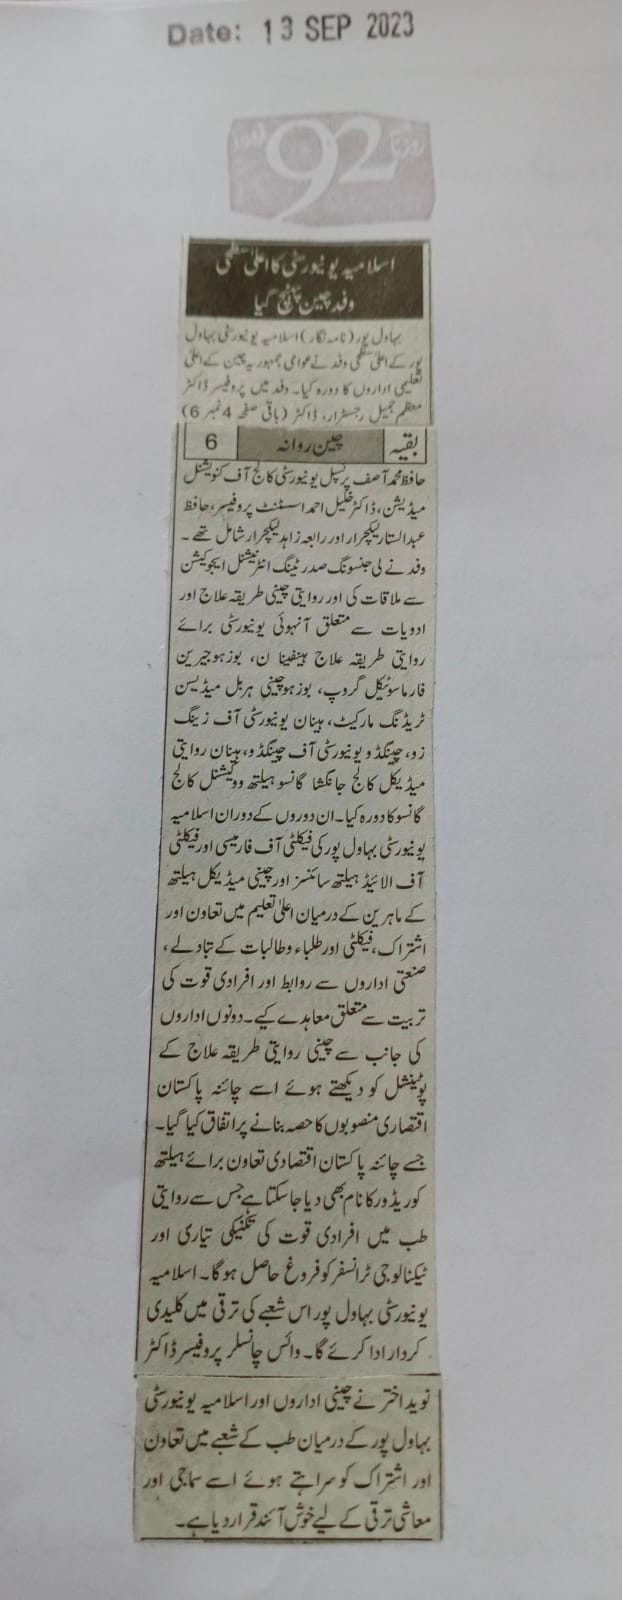 Date: 13 SEP 2023
روزنامہ 92 نیوز
اسلامیہ یونیورسٹی کا اعلیٰ سطحی
وفد چین پہنچ گیا
بہاول پور (نامہ نگار) اسلامیہ یونیورسٹی بہاول
پور کے اعلیٰ سطحی وفد نے عوامی جمہوریہ چین کے اعلیٰ
تعلیمی اداروں کا دورہ کیا۔ وفد میں پروفیسر ڈاکٹر
معظم جمیل رجسٹرار، ڈاکٹر (باقی صفحہ 4 نمبر 6)
بقیہ چین روانہ 6
حافظ محمد آصف پرنسپل یونیورسٹی کالج آف کنویشنل
میڈیشن، ڈاکٹر خلیل احمد اسسٹنٹ پروفیسر، حافظ
عبدالستار لیکچرار اور رابعہ زاہد لیکچرار شامل تھے۔
وفد نے لی جنسونگ صدر ٹینگ انٹرنیشنل ایجوکیشن
سے ملاقات کی اور روایتی چینی طریقہ علاج اور
ادویات سے متعلق آنہوئی یونیورسٹی برائے
روایتی طریقہ علاج ہیفینا ن، بوزہو جیرین
فارماسوٹیکل گروپ، بوزہو چینی ہربل میڈیسن
ٹریڈنگ مارکیٹ، ہینان یونیورسٹی آف زینگ
زو، چینگڈو یونیورسٹی آف چینگڈو، ہینان روایتی
میڈیکل کالج جانگشا گانسو ہیلتھ ووکیشنل کالج
گانسو کا دورہ کیا۔ ان دوروں کے دوران اسلامیہ
یونیورسٹی بہاول پور کی فیکلٹی آف فارمیسی اور فیکلٹی
آف الائیڈ ہیلتھ سائنسز اور چینی میڈیکل ہیلتھ
کے ماہرین کے درمیان اعلیٰ تعلیم میں تعاون اور
اشتراک، فیکلٹی اور طلباء و طالبات کے تبادلے،
صنعتی اداروں سے روابط اور افرادی قوت کی
تربیت سے متعلق معاہدے کیے۔ دونوں اداروں
کی جانب سے چینی روایتی طریقہ علاج کے
پوٹینشل کو دیکھتے ہوئے اسے چائنہ پاکستان
اقتصاری منصوبوں کا حصہ بنانے پر اتفاق کیا گیا۔
جسے چائنہ پاکستان اقتصادی تعاون برائے ہیلتھ
کوریڈور کا نام بھی دیا جاسکتا ہے جس سے روایتی
طب میں افرادی قوت کی تکنیکی تیاری اور
ٹیکنالوجی ٹرانسفر کو فروغ حاصل ہوگا۔ اسلامیہ
یونیورسٹی بہاول پور اس شعبے کی ترقی میں کلیدی
کردار ادا کرئے گا۔ وائس چانسلر پروفیسر ڈاکٹر
نوید اختر نے چینی اداروں اور اسلامیہ یونیورسٹی
بہاول پور کے درمیان طب کے شعبے میں تعاون
اور اشتراک کو سراہتے ہوئے اسے سماجی اور
معاشی ترقی کے لیے خوش آئند قرار دیا ہے۔